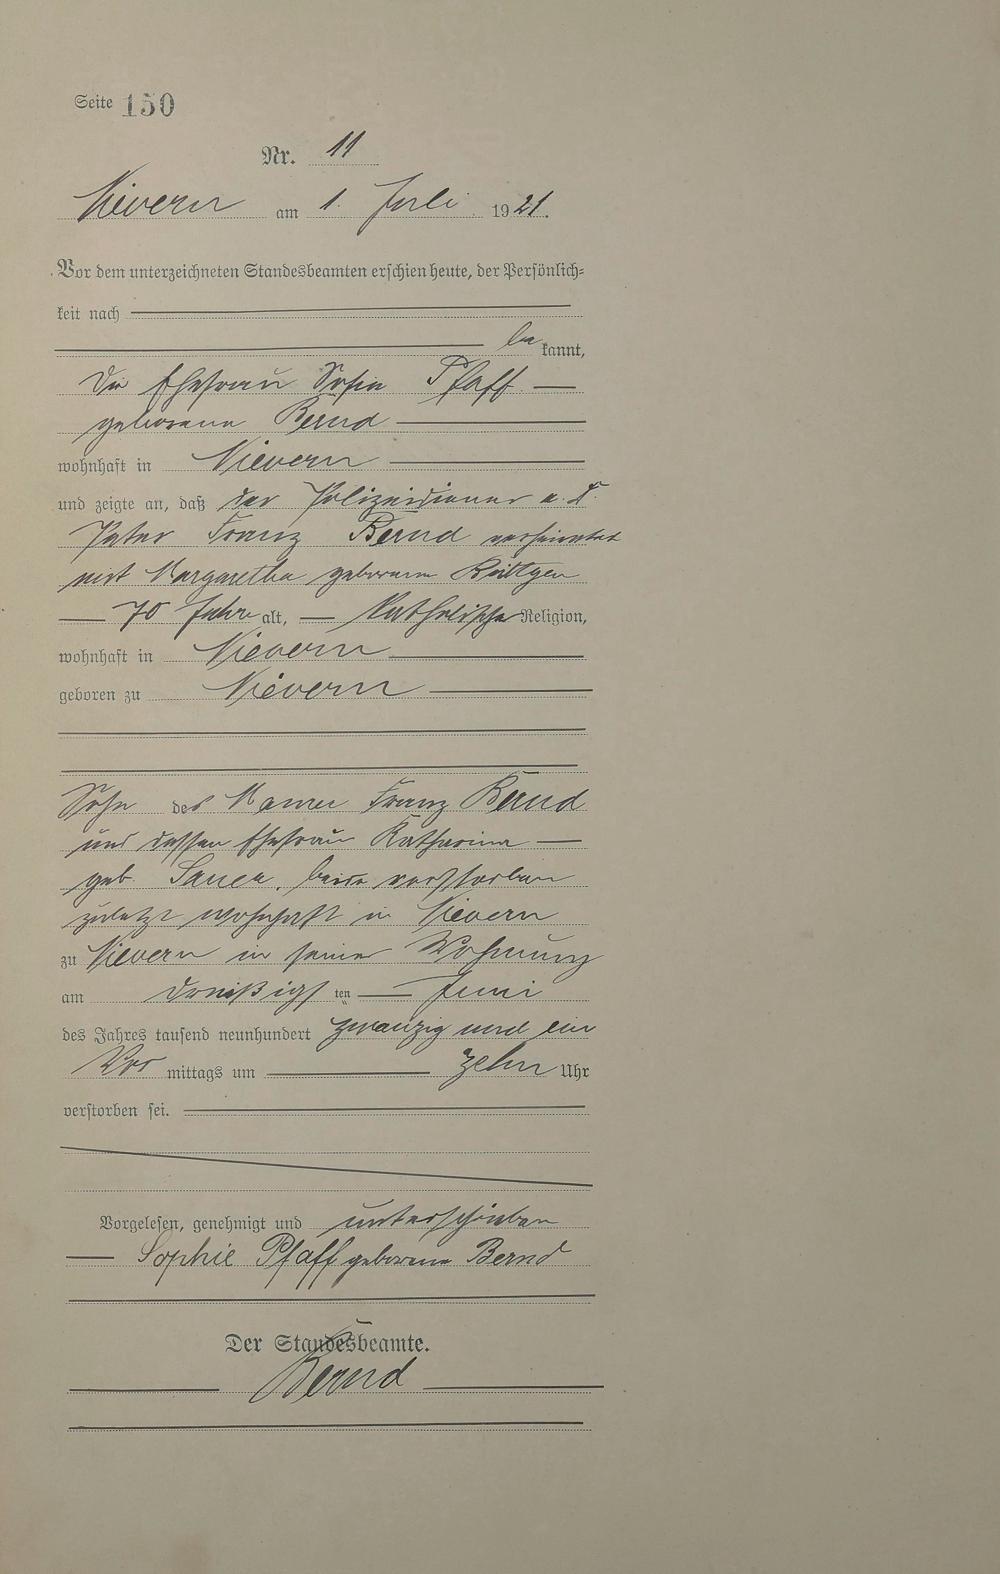 Seite 150
Nr. 11
Nievern am 1. Juli 1921.
Vor dem unterzeichneten Standesbeamten erschien heute, der Persönlich-
keit nach
be kannt,
die Ehefrau Sofia Pfaff
geborene Bernd
wohnhaft in Nievern
und zeigte an, daß der Polizeidiener a. D.
Peter Franz Bernd verheiratet
mit Margaretha geborene Röttgen
70 Jahre alt, katholischer Religion,
wohnhaft in Nievern
geboren zu Nievern
Sohn des Franz Bernd
und dessen Ehefrau Katharina
geb. beide verstorben
zuletzt wohnhaft in Nievern
zu Nievern in seiner Wohnung
am dreißigs ten Juni
des Jahres tausend neunhundert zwanzig und ein
Vor mittags um zehn Uhr
verstorben sei.
Vorgelesen, genehmigt und unterschrieben
Sophie Pfaff geborene Bernd
Der Standesbeamte.
Bernd